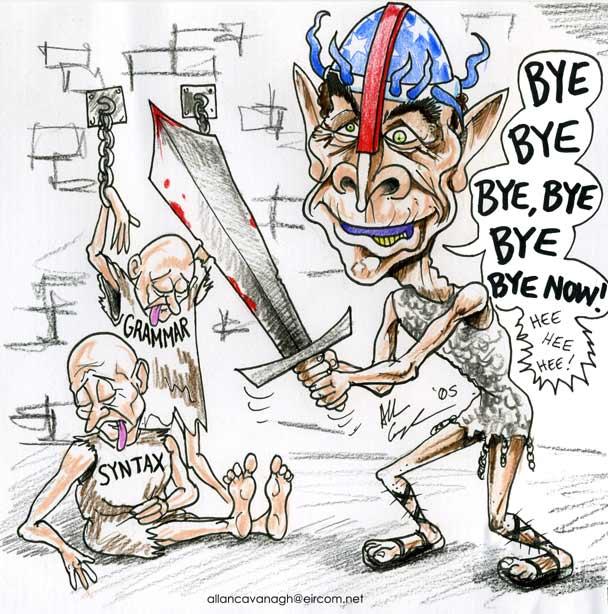 BYE
BYE
BYE, BYE
BYE
BYE NOW!
HEE
HEE
HEE!
GRAMMAR
SYNTAX
'05
allancavanagh@eircom.net